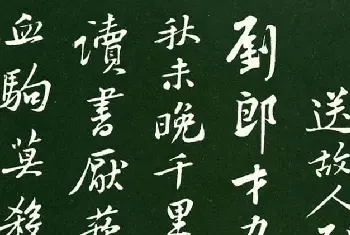 送故人
劉郎才
秋未晚千里
讀書厭
血駒莫